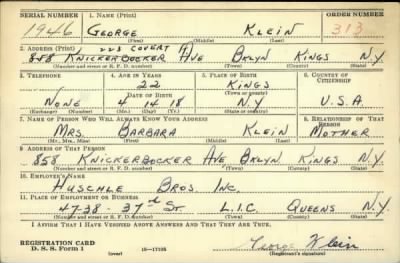 SERIAL NUMBER 1. NAME (Print) ORDER NUMBER
1946 GEORGE KLEIN 313
(First) (Middle) (Last)
2. ADDRESS (Print) 228 COVERT
858 KNICKERBOCKER AVE BKLYN KINGS N.Y.
(Number and street or R. F. D. number) (Town) (County) (State)
3. TELEPHONE 4. AGE IN YEARS 5. PLACE OF BIRTH 6. COUNTRY OF CITIZENSHIP
22 KINGS
DATE OF BIRTH (Town or county)
NONE 4 14 18 N.Y U.S.A.
(Exchange) (Number) (Mo.) (Day) (Yr.) (State or country)
7. NAME OF PERSON WHO WILL ALWAYS KNOW YOUR ADDRESS 8. RELATIONSHIP OF THAT PERSON
MRS. BARBARA KLEIN MOTHER
(Mr., Mrs., Miss) (First) (Middle) (Last)
9. ADDRESS OF THAT PERSON
858 KNICKERBOCKER AVE BKLYN KINGS N.Y.
(Number and street or R. F. D. number) (Town) (County) (State)
10. EMPLOYER'S NAME
HUSCHLE BROS. INC.
11. PLACE OF EMPLOYMENT OR BUSINESS
47-38 - 37th ST. L.I.C. QUEENS N.Y.
(Number and street or R. F. D. number) (Town) (County) (State)
I AFFIRM THAT I HAVE VERIFIED ABOVE ANSWERS AND THAT THEY ARE TRUE.
REGISTRATION CARD
D. S. S. Form 1 (over) 16—17105 George Klein
(Registrant's signature)